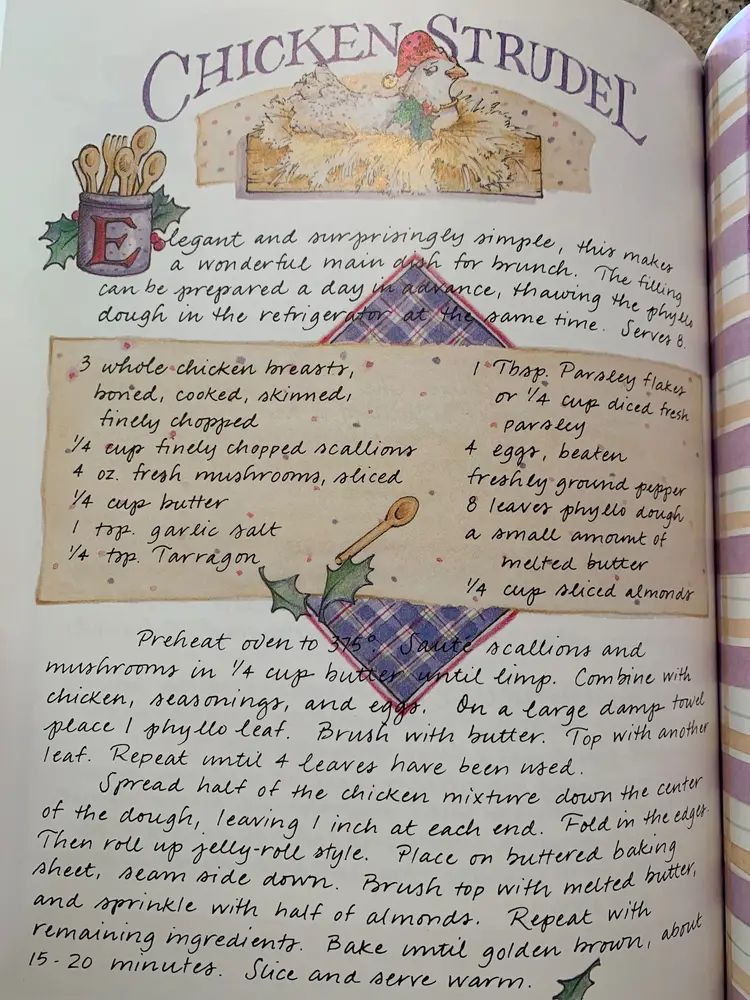 CHICKEN STRUDEL
Elegant and surprisingly simple, this makes
a wonderful main dish for brunch. The filling
can be prepared a day in advance, thawing the phyllo
dough in the refrigerator at the same time. Serves 8.
3 whole chicken breasts,
boned, cooked, skinned,
finely chopped
1/4 cup finely chopped scallions
4 oz. fresh mushrooms, sliced
1/4 cup butter
1 tsp. garlic salt
1/4 tsp. Tarragon
1 Tbsp. Parsley flakes
or 1/4 cup diced fresh
parsley
4 eggs, beaten
freshly ground pepper
8 leaves phyllo dough
a small amount of
melted butter
1/4 cup sliced almonds
Preheat oven to 375°. Sauté scallions and
mushrooms in 1/4 cup butter until limp. Combine with
chicken, seasonings, and eggs. On a large damp towel
place 1 phyllo leaf. Brush with butter. Top with another
leaf. Repeat until 4 leaves have been used.
Spread half of the chicken mixture down the center
of the dough, leaving 1 inch at each end. Fold in the edges.
Then roll up jelly-roll style. Place on buttered baking
sheet, seam side down. Brush top with melted butter,
and sprinkle with half of almonds. Repeat with
remaining ingredients. Bake until golden brown, about
15-20 minutes. Slice and serve warm.